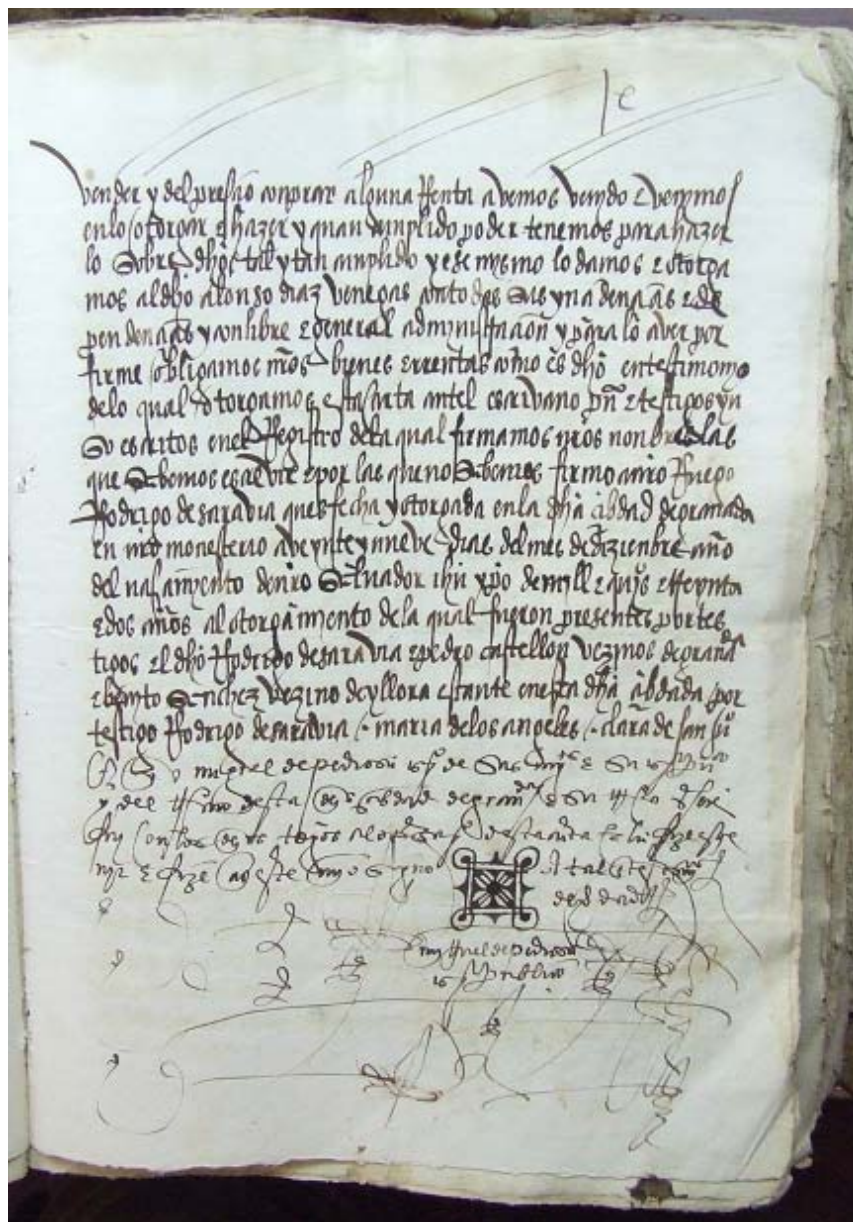 vender y del presçio conprar alguna Renta avemos venydo e venymos
en lo otorgar e hazer y quan cunplido poder tenemos para hazer
lo sobre dho tal y tan cunplido y ese mysmo lo damos e otorga
mos al dho alonso diaz venegas con todas sus ynçidençias e de
pendençias y con libre e general administraçion y para lo aver por
firme obligamos nros bienes e rrentas como es dho en testimonyo
de lo qual otorgamos esta carta antel escrivano pu e testigos yn
so escritos en el Registro de la qual firmamos nros nonbres las
que sabemos escrevir e por las que no sabemos firmo a nro Ruego
Rodrigo de saravia ques fecha y otorgada en la dha çibdad de granada
en nro monesterio a veynte y nueve dias del mes de dizienbre año
del nasçimyento de nro salvador ihu xpo de mill e quis e treynta
e dos años al otorgamyento de la qual fueron presentes por tes
tigos el dho Rodrigo de saravia e pedro castellon vezinos de granada
e benyto sanchez vezino de yllora estante en esta dha çibdad a por
testigo Rodrigo de saravia maria de los angeles clara de san
yo miguel de pedrosa de sus e su
y del desta çibdad de granada e su
con los dhos tgos al desta carta
e fize aqueste myo syno a tal testimonio
de verdad
miguel de pedrosa
publico